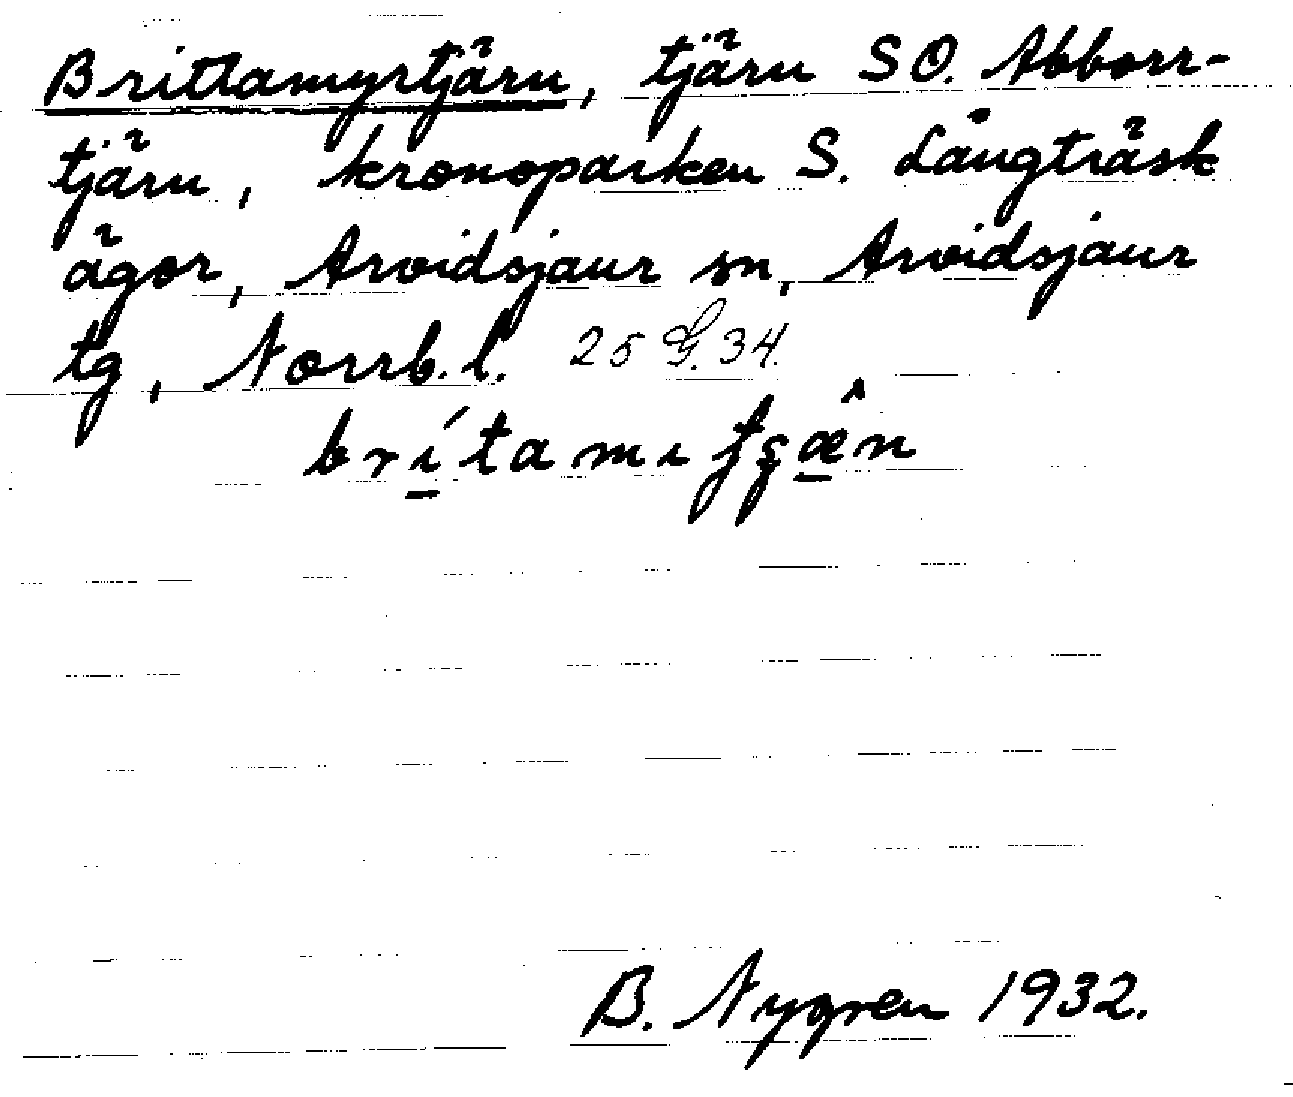 Brittamyrtjärn, tjärn SO. Abborr-
tjärn, kronoparken S. Långträsk
ägor, Arvidsjaur sn, Arvidsjaur
tg, Norrb. l. 25 G. 34.
brítamıʈʂæ̂n
B. Nygren 1932.